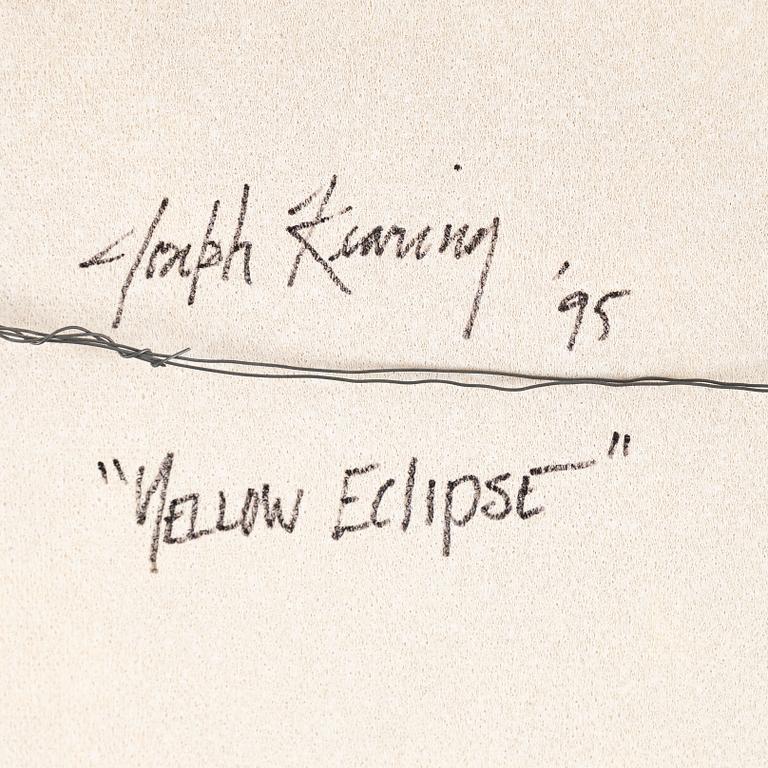 Joseph Kinnung '95
"YELLOW EclipsE"